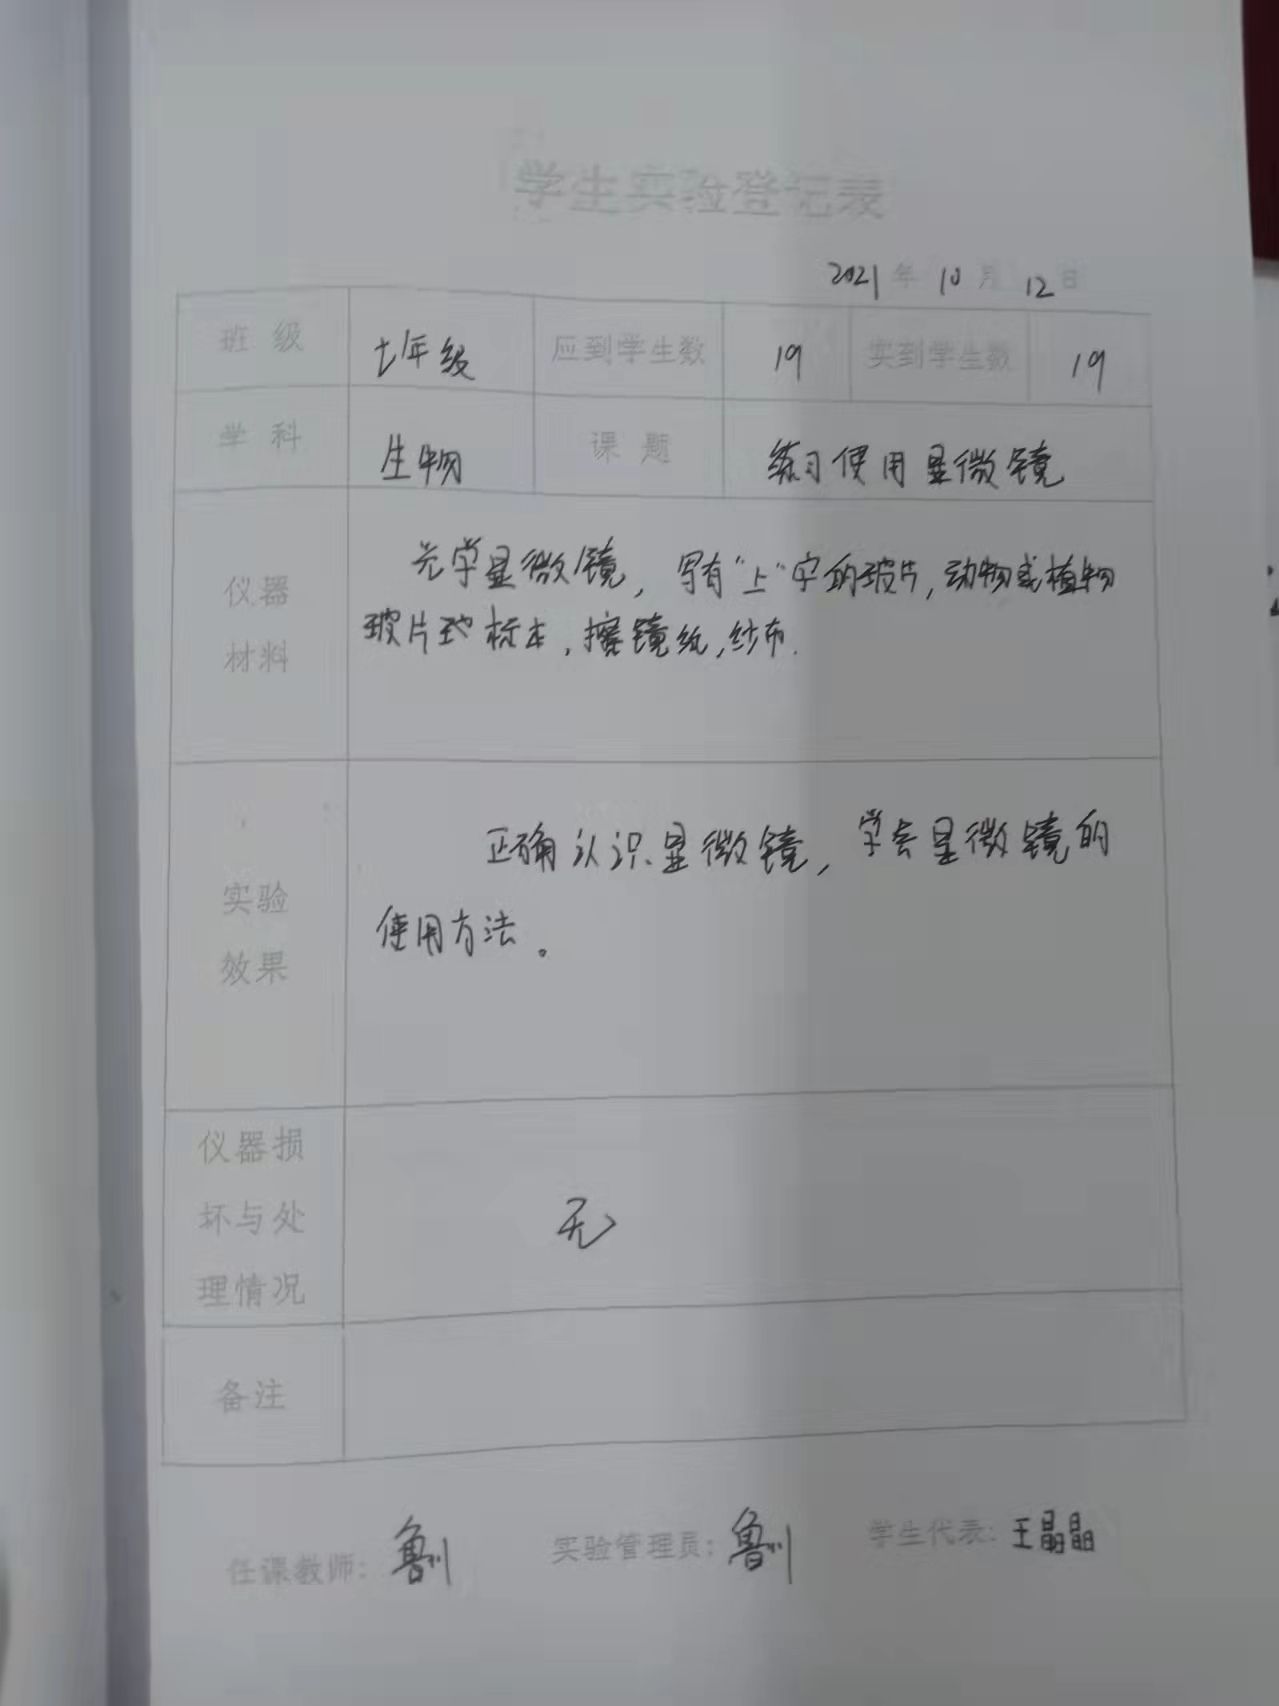 学生实验登记表
2021年10月12日
班级 七年级 应到学生数 19 实到学生数 19
学科 生物 课题 练习使用显微镜
仪器
材料
光学显微镜，写有“上”字的玻片，动物或植物
玻片标本，擦镜纸，纱布.
实验
效果
正确认识显微镜，学会显微镜的
使用方法。
仪器损
坏与处
理情况
无
备注
任课教师： 实验管理员： 学生代表：王晶晶